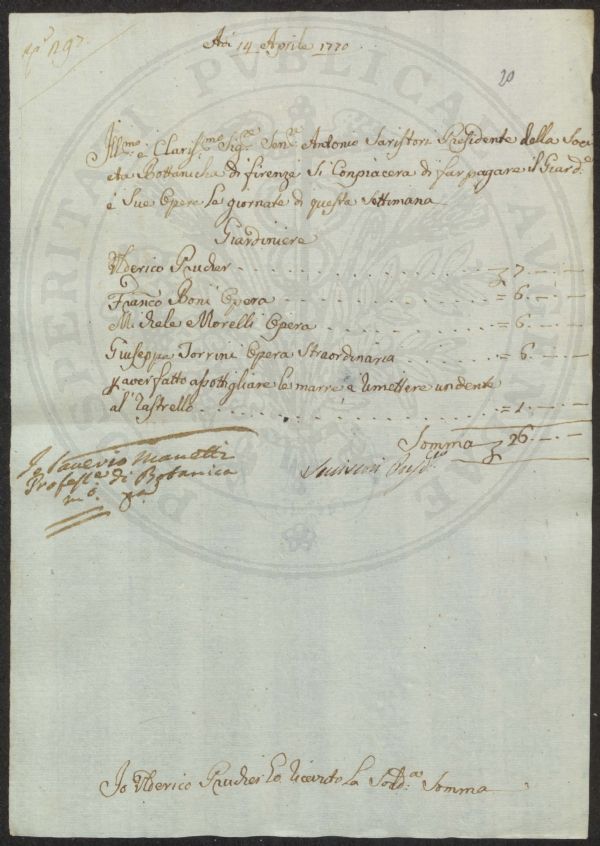 n.º 197.
Adi 14 Aprile 1770
20
Ill.mo e Claris.mo Sig.re Sen.re Antonio Saristori Presidente della Soci
eta Bottanicha di firenze Si Conpiacera di far pagare il Giard.e
e Sue Opere le giornate di questa Settimana
Giardiniere
Ulderico Prucher . . . . . . . . . . £ 7 . — . —
Franc.o Boni Opera . . . . . . . . . = 6 . — . —
Michele Morelli Opera . . . . . . . . = 6 . — . —
Giuseppa Torrini Opera Straordinaria . . . . = 6 . — . —
p aver fatto asottigliare le marre e Rimettere un dente
al Rastrello . . . . . . . . . . = 1 . — . —
Somma £ 26 . — . —
Io Saverio Manetti
Profess.e di Botanica
m.o p.a
Io Ulderico Prucher Ò Ricevuto La Sodd.a Somma
PROSPERITATI PVBLICAE AVGENDAE